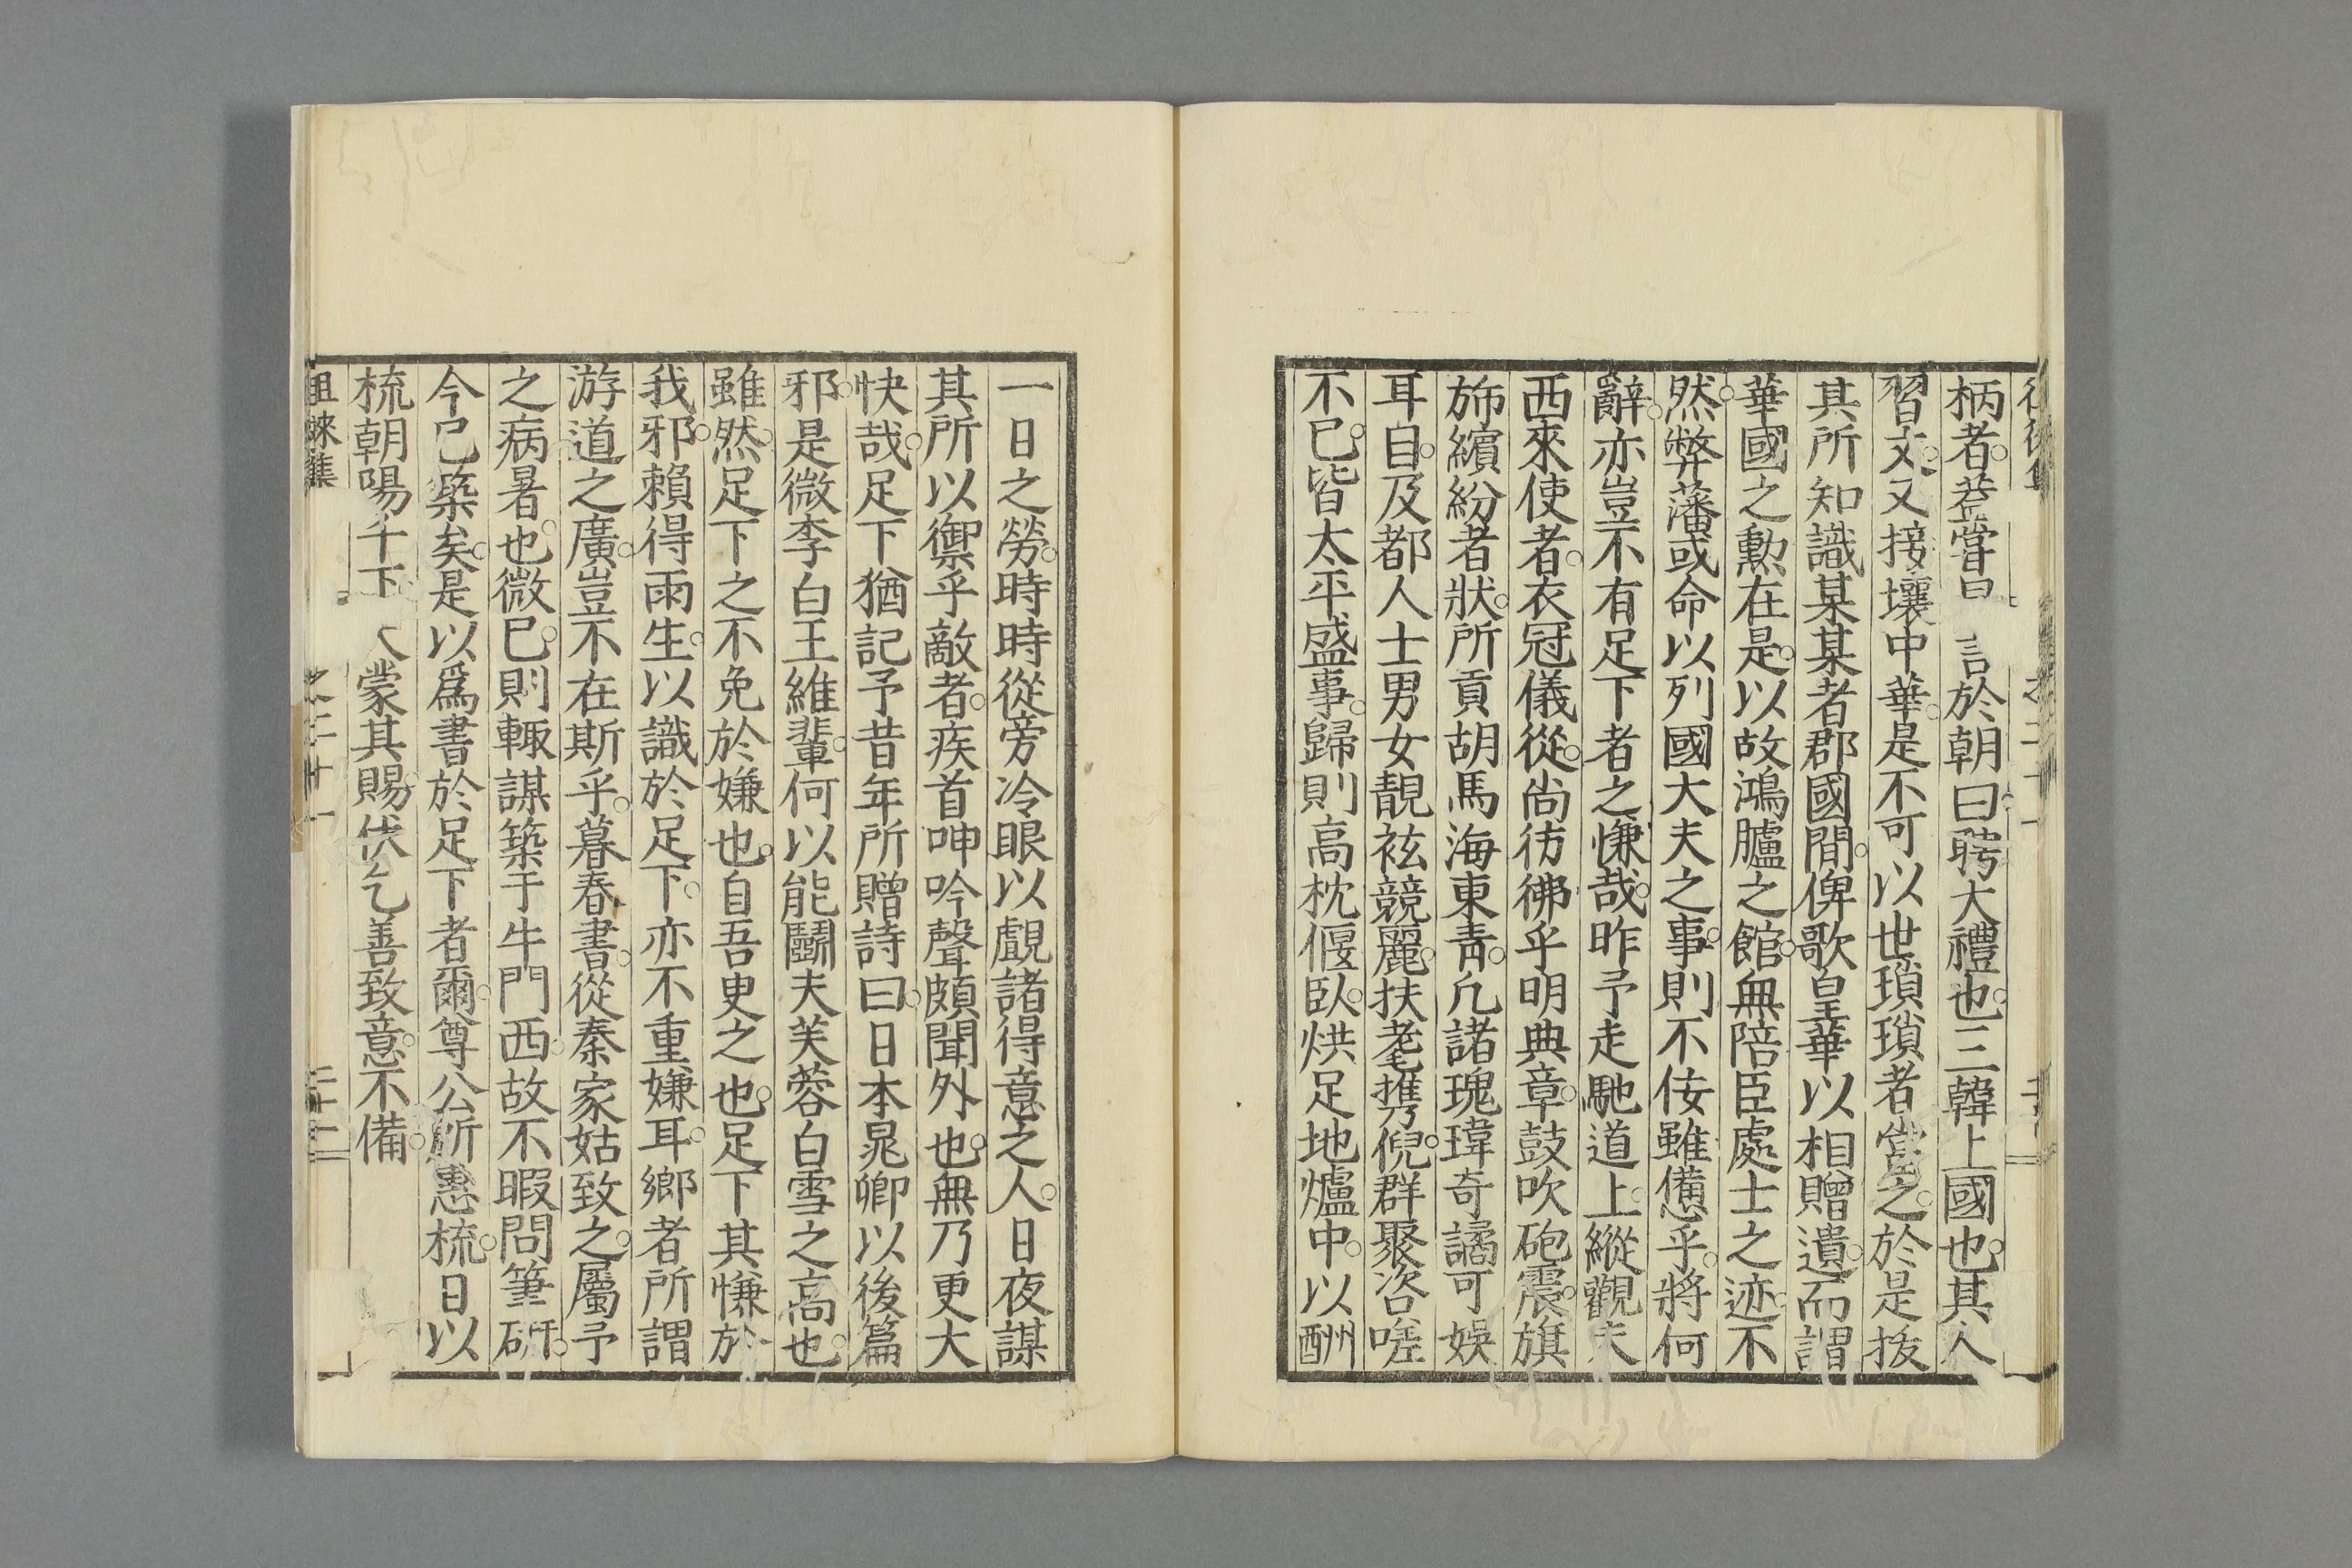 柄者。葢嘗言於朝曰聘大禮也。三韓上國也。其人
習文。又接壤中華。是不可以世瑣瑣者當之。於是拔
其所知識某某者郡國間。俾歌皇華以相贈遺。而謂
華國之勳在是。以故鴻臚之館。無陪臣處士之迹。不
然。弊藩或命以列國大夫之事。則不佞雖憊乎。將何
辭。亦豈不有足下者之慊哉。昨予走馳道上。縱觀夫
西來使者。衣冠儀從。尚彷彿乎明典章。鼓吹砲震。旗
斾繽紛者狀。所貢胡馬海東青。凡諸瑰瑋奇譎可娛
耳目。及都人士男女靚袨競麗。扶耄擕倪。群聚咨嗟
不已。皆太平盛事。歸則高枕偃臥。烘足地爐中。以酬
一日之勞。時時從旁冷眼以覷諸得意之人。日夜謀
其所以禦乎敵者。疾首呻吟聲頗聞外也。無乃更大
快哉。足下猶記予昔年所贈詩曰。日本晁卿以後篇
邪。是微李白王維輩。何以能鬭夫芙蓉白雪之高也。
雖然。足下之不免於嫌也。自吾吏之也。足下其慊於
我邪。賴得雨生。以識於足下。亦不重嫌耳。鄉者所謂
游道之廣。豈不在斯乎。暮春書。從秦家姑致之。屬予
之病暑也。微已。則輙謀築于牛門西。故不暇問筆硏。
今已築矣。是以爲書於足下者爾。尊公所惠梳。日以
梳朝陽千下蒙其賜。伏乞善致意。不備。
徂徠集 之二十一 二十二